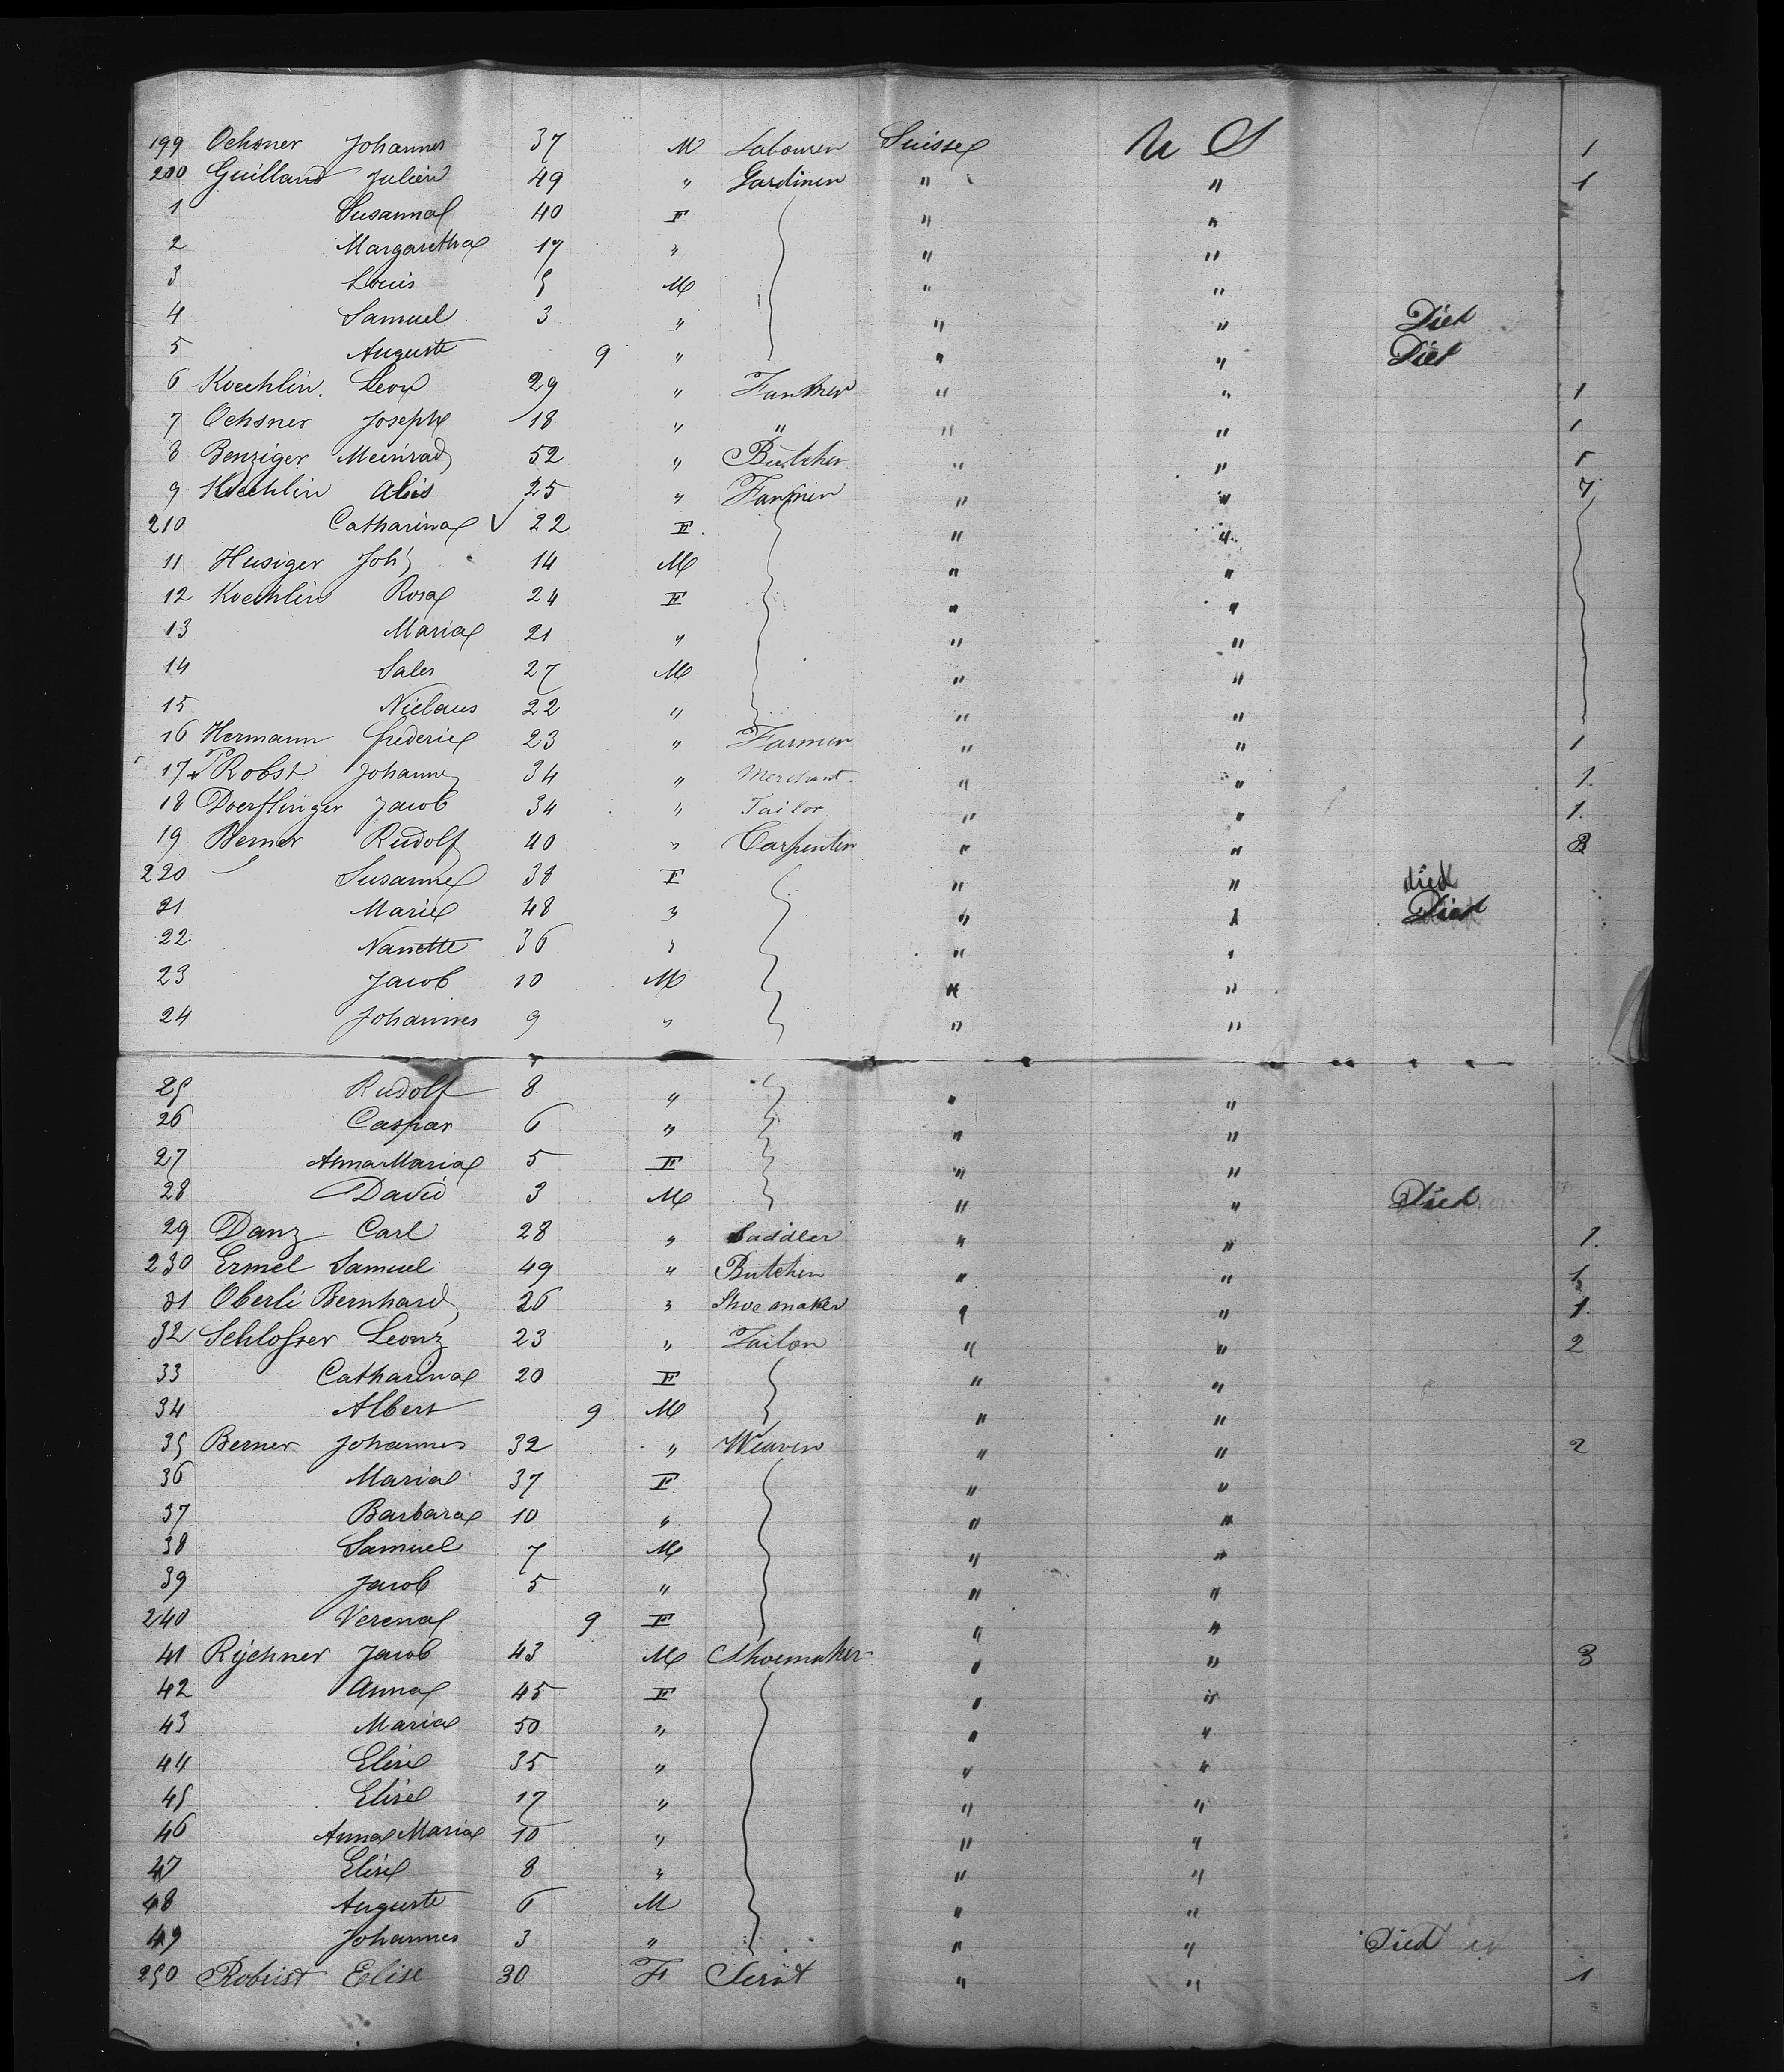 199 Ochsner Johannes 37 M Labourer Suisse U S 1
200 Guilland Julien 49 " Gardiner " " 1
1 Susanna 40 F " "
2 Margaretha 17 " " "
3 Louis 5 M " "
4 Samuel 3 " " " Died
5 Auguste 9 " " " Died
6 Koechlin. Leon 29 " Farmer " " 1
7 Ochsner Joseph 18 " " " " 1
8 Benziger Meinrad 52 " Butcher " " 1
9 Koechlin Alois 25 " Farmer " " 7
210 Catharina √ 22 F " "
11 Husiger Joh 14 M " "
12 Koechlin Rosa 24 F " "
13 Maria 21 " " "
14 Sales 27 M " "
15 Niclaus 22 " " "
16 Hermann frederic 23 " Farmer " " 1
17 Robst Johannes 34 " Merchant " " 1.
18 Doerflinger Jacob 34 " Tailor " " 1.
19 Berner Rudolf 40 " Carpenter " " 3
220 Susanne 38 F " " died
21 Marie 48 " " " Died
22 Nanette 36 " " "
23 Jacob 10 M " "
24 Johannes 9 " " "
25 Rudolf 8 " " "
26 Caspar 6 " " "
27 Anna Maria 5 F " "
28 David 3 M " " Died
29 Danz Carl 28 " Saddler " " 1.
230 Ermel Samuel 49 " Butcher " " 1.
31 Oberli Bernhard 26 " Shoemaker " " 1.
32 Schlosser Leonz 23 " Tailor " " 2
33 Catharina 20 F " "
34 Albert 9 M " "
35 Berner Johannes 32 " Weaver " " 2
36 Maria 37 F " "
37 Barbara 10 " " "
38 Samuel 7 M " "
39 Jacob 5 " " "
240 Verena 9 F " "
41 Rychner Jacob 43 M Shoemaker " " 3
42 Anna 45 F " "
43 Maria 50 " " "
44 Elise 35 " " "
45 Elise 17 " " "
46 Anna Maria 10 " " "
47 Elise 8 " " "
48 Auguste 6 M " "
49 Johannes 3 " " " Died
250 Elise 30 F " " 1